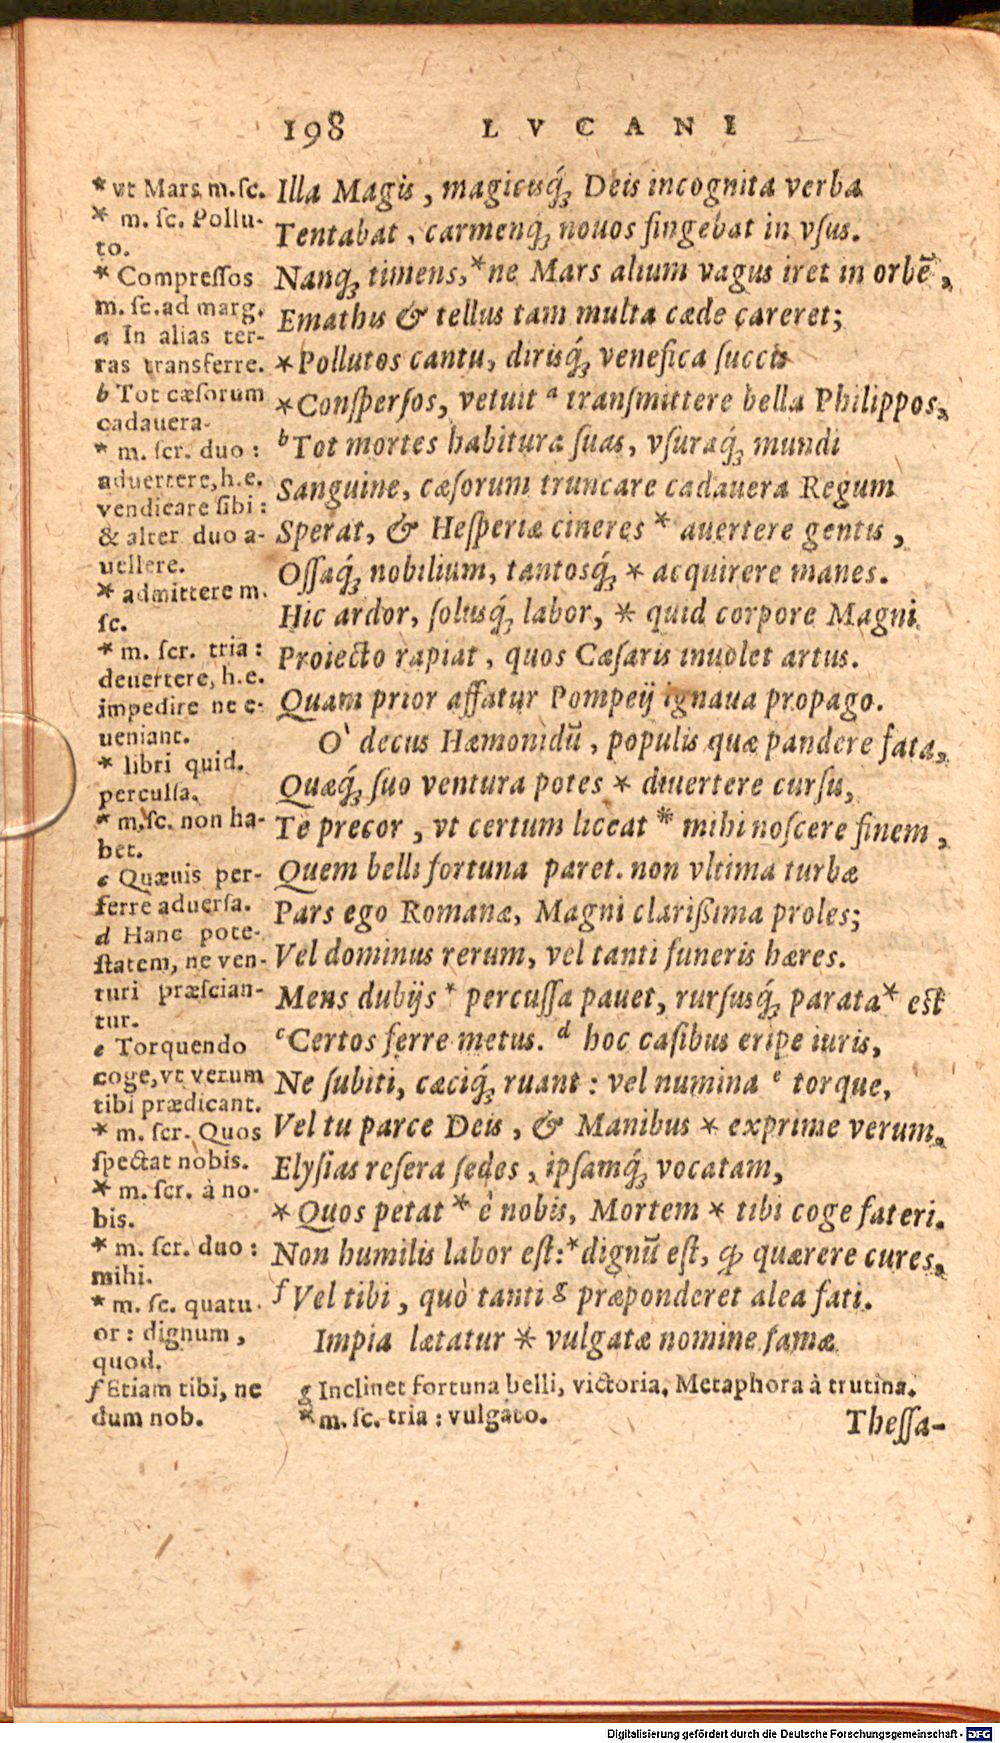 198 LVCANI
* vt Mars m.ſc.
* m. ſc. Pollu-
to.
* Compreſſos
m. ſc. ad marg.
a In alias ter-
ras transferre.
b Tot cæſorum
cadauera.
* m. ſcr. duo :
aduertere, h.e.
vendicare ſibi :
& alter duo a-
uellere.
* admittere m.
ſc.
* m. ſcr. tria :
deuertere, h.e.
impedire ne e-
ueniant.
* libri quid.
perculſa.
* m.ſc. non ha-
bet.
c Quæuis per-
ferre aduerſa.
d Hanc pote-
ſtatem, ne ven-
turi præſcian-
tur.
e Torquendo
coge, vt verum
tibi prædicant.
* m. ſcr. Quos
ſpectat nobis.
* m. ſcr. à no-
bis.
* m. ſcr. duo :
mihi.
* m. ſc. quatu-
or : dignum,
quod.
f Etiam tibi, ne
dum nob.
Illa Magis, magicisq́ꝫ Deis incognita verba
Tentabat, carmenq́ꝫ nouos fingebat in vſus.
Nanqꝫ timens, * ne Mars alium vagus iret in orbē,
Emathis & tellus tam multa cæde careret;
* Pollutos cantu, dirisq́ꝫ venefica ſuccis
* Conſperſos, vetuit a tranſmittere bella Philippos,
b Tot mortes habitura ſuas, vſuraq́ꝫ mundi
Sanguine, cæſorum truncare cadauera Regum
Sperat, & Heſperiæ cineres * auertere gentis,
Oſſaq́ꝫ nobilium, tantosq́ꝫ * acquirere manes.
Hic ardor, ſolusq́ꝫ labor, * quid corpore Magni
Proiecto rapiat, quos Cæſaris inuolet artus.
Quam prior affatur Pompeij ignaua propago.
O` decus Hæmonidū, populis quæ pandere fata,
Quæq́ꝫ ſuo ventura potes * diuertere curſu,
Te precor, vt certum liceat * mihi noſcere finem,
Quem belli fortuna paret. non vltima turbæ
Pars ego Romanæ, Magni clarißima proles;
Vel dominus rerum, vel tanti funeris hæres.
Mens dubijs * percuſſa pauet, rurſusq́ꝫ parata * eſt
c Certos ferre metus. d hoc caſibus eripe iuris,
Ne ſubiti, cæciq́ꝫ ruant : vel numina e torque,
Vel tu parce Deis, & Manibus * exprime verum.
Elyſias reſera ſedes, ipſamq́ꝫ vocatam,
* Quos petat * è nobis, Mortem * tibi coge fateri.
Non humilis labor eſt: * dignū eſt, ꝙ quærere cures,
f Vel tibi, quò tanti g præponderet alea fati.
Impia lætatur * vulgatæ nomine famæ
g Inclinet fortuna belli, victoria. Metaphora à trutina.
* m. ſc. tria : vulgato.
Theſſa-
Digitalisierung gefördert durch die Deutsche Forschungsgemeinschaft - DFG